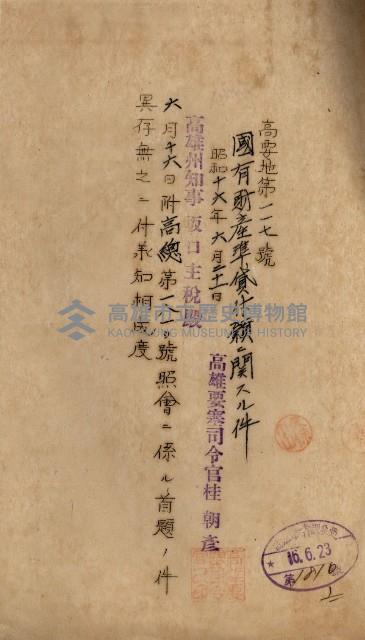 高要地第一一七號
國有財產準貸付願ニ関スル件
昭和十六年六月二十一日
高雄要塞司令官桂朝彥
高雄州知事坂口主稅殿
六月十六日附高總第一
號照會ニ係ル首題ノ件
異存無之ニ付承知相成度
高雄市立歷史博物館
KAOHSIUNG MUSEUM OF HISTORY
16.6.23
第
號